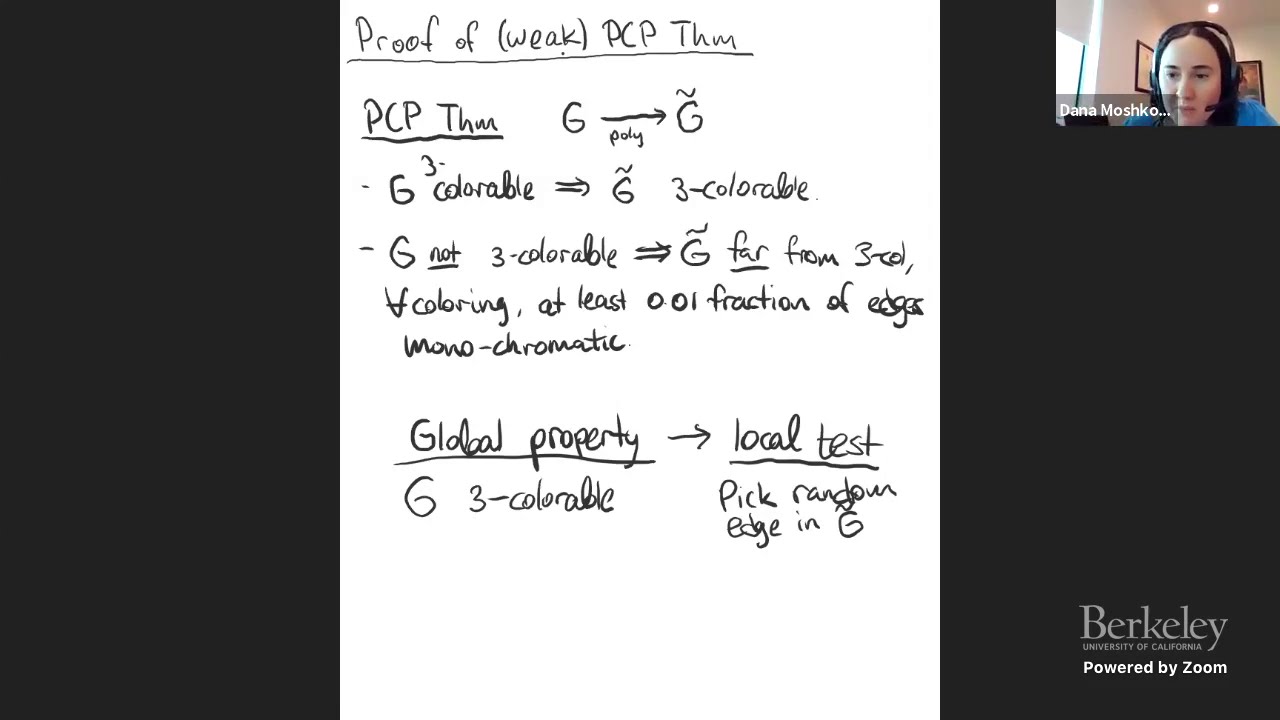 Proof of (weak) PCP Thm
PCP Thm G ⟶ G̃
poly
- G 3-colorable ⟹ G̃ 3-colorable.
- G not 3-colorable ⟹ G̃ far from 3-col,
∀ coloring, at least 0.01 fraction of edges
mono-chromatic.
Global property → local test
G 3-colorable Pick random
edge in G̃
Dana Moshko...
Berkeley
UNIVERSITY OF CALIFORNIA
Powered by Zoom